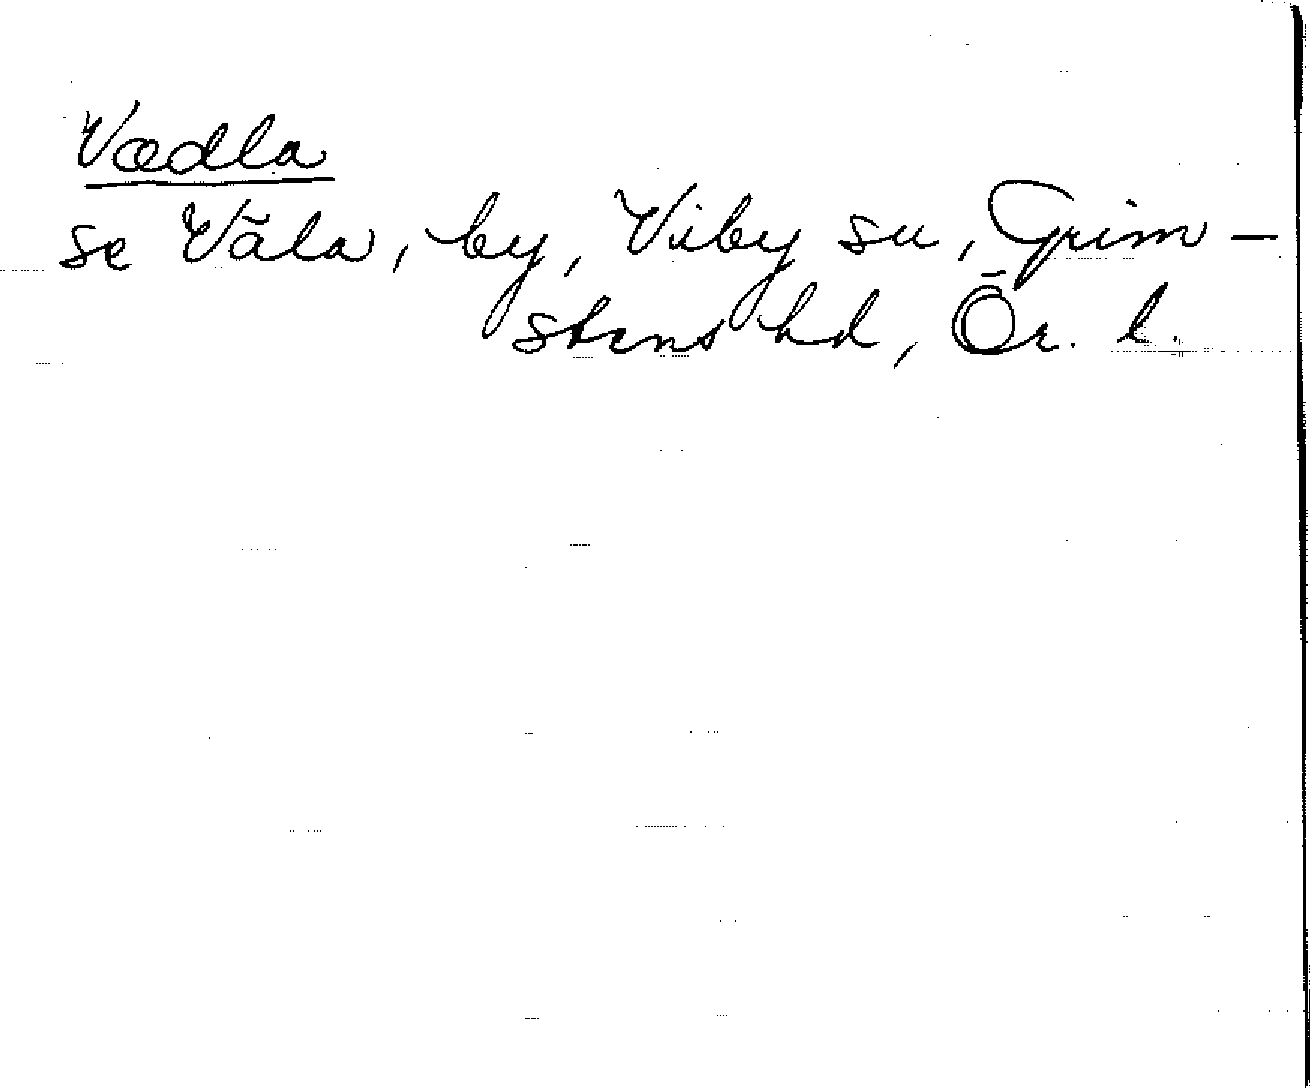 Vædla
se Väla, by, Viby sn, Grim-
stens hd, Ör. l.